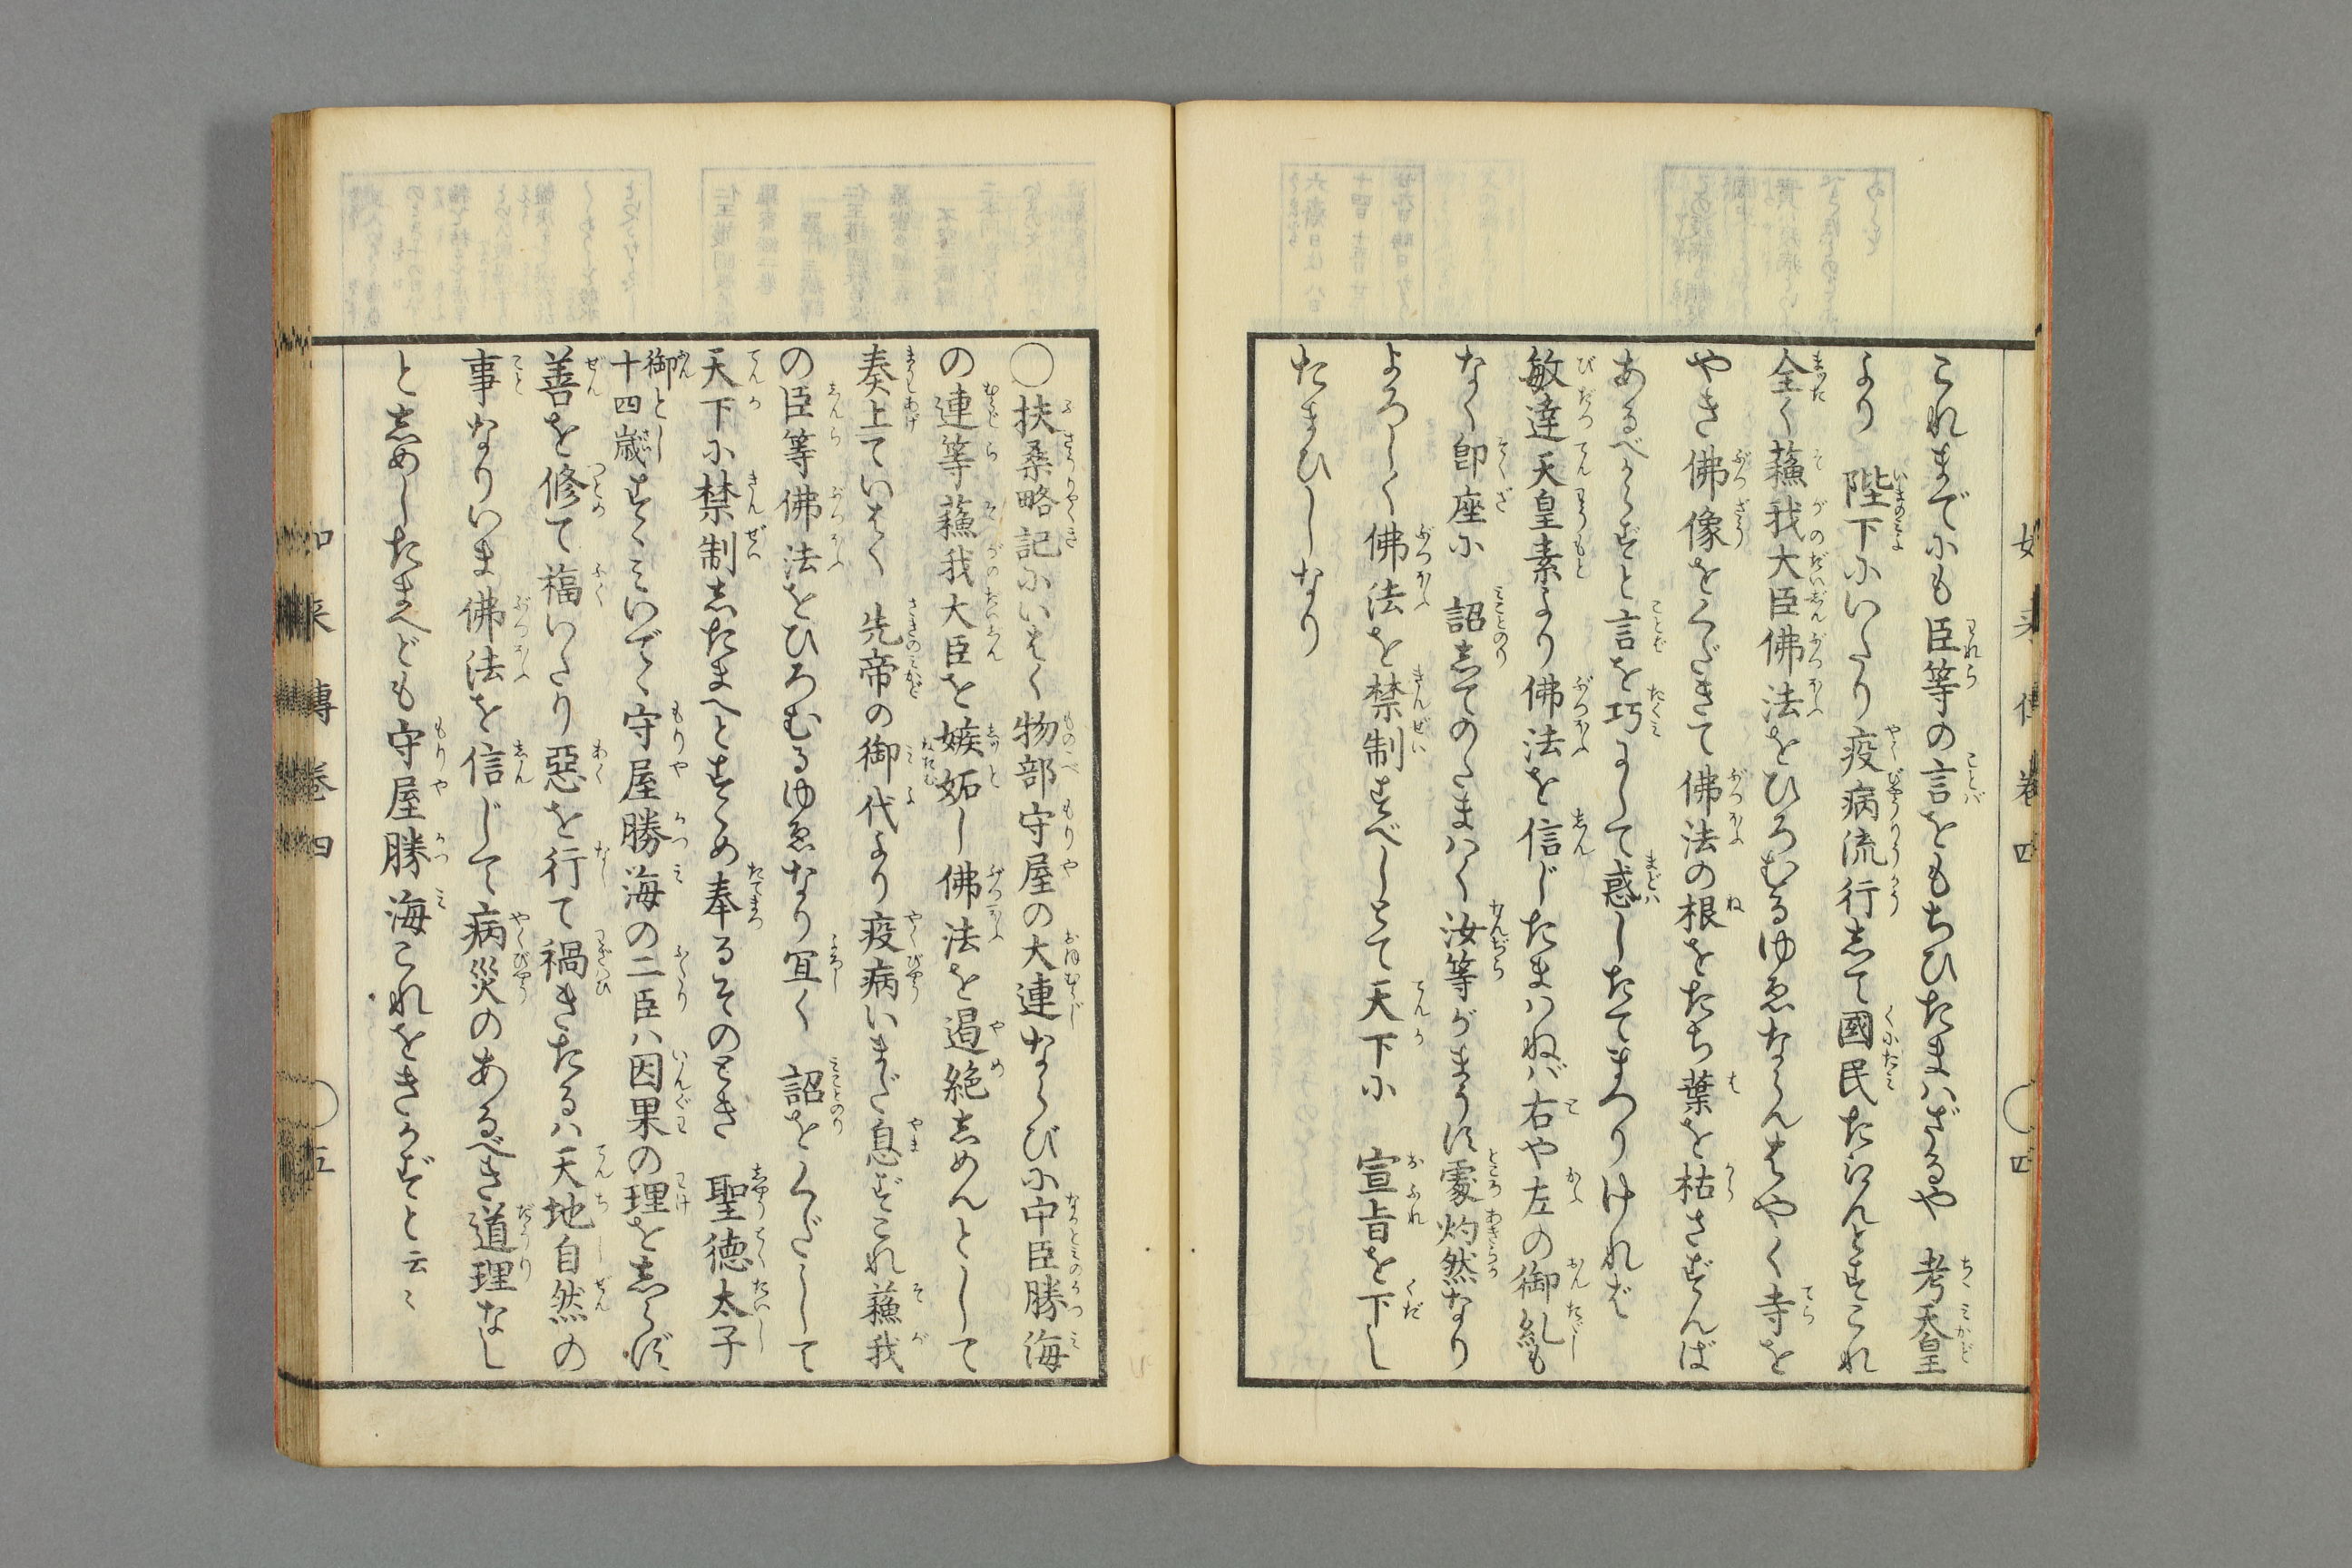 これまでにも臣等の言をもちひたまハざるや　考天皇
より　陛下にいたり疫病流行志て國民たえんとすこれ
全く蘓我大臣佛法をひろむるゆゑならんはやく寺を
やき佛像をくだきて佛法の根をたち葉を枯さずんば
あるべからずと言を巧よくて惑したてまつりけれど
敏達天皇素より佛法を信じたまハねバ右や左の御糺も
なく卽座に　詔志てのたまハく汝等がまうす處灼然なり
よろしく佛法を禁制すべしとて天下に　宣旨を下し
たまひしなり
〇扶桑略記にいはく物部守屋の大連ならびに中臣勝海
の連等蘓我大臣を嫉妬し佛法を遏絶志めんとして
奏上ていはく　先帝の御代より疫病いまだ息ずこれ蘓我
の臣等佛法をひろむるゆゑなり宜く　詔をくだして
天下に禁制志たまへとすゝめ奉るそのとき　聖徳太子
御とし十四歳すゝミいでゝ守屋勝海の二臣ハ因果の理を志らず
善を修て福いたり惡を行て禍きたるハ天地自然の
事なりいま佛法を信じて病災のあるべき道理なし
と志めしたまへども守屋勝海これをきかずと云々
如来傳卷四　〇四
如来傳卷四　〇五